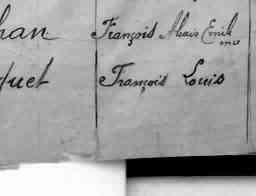 han François Alexis Emile
quet François Louis